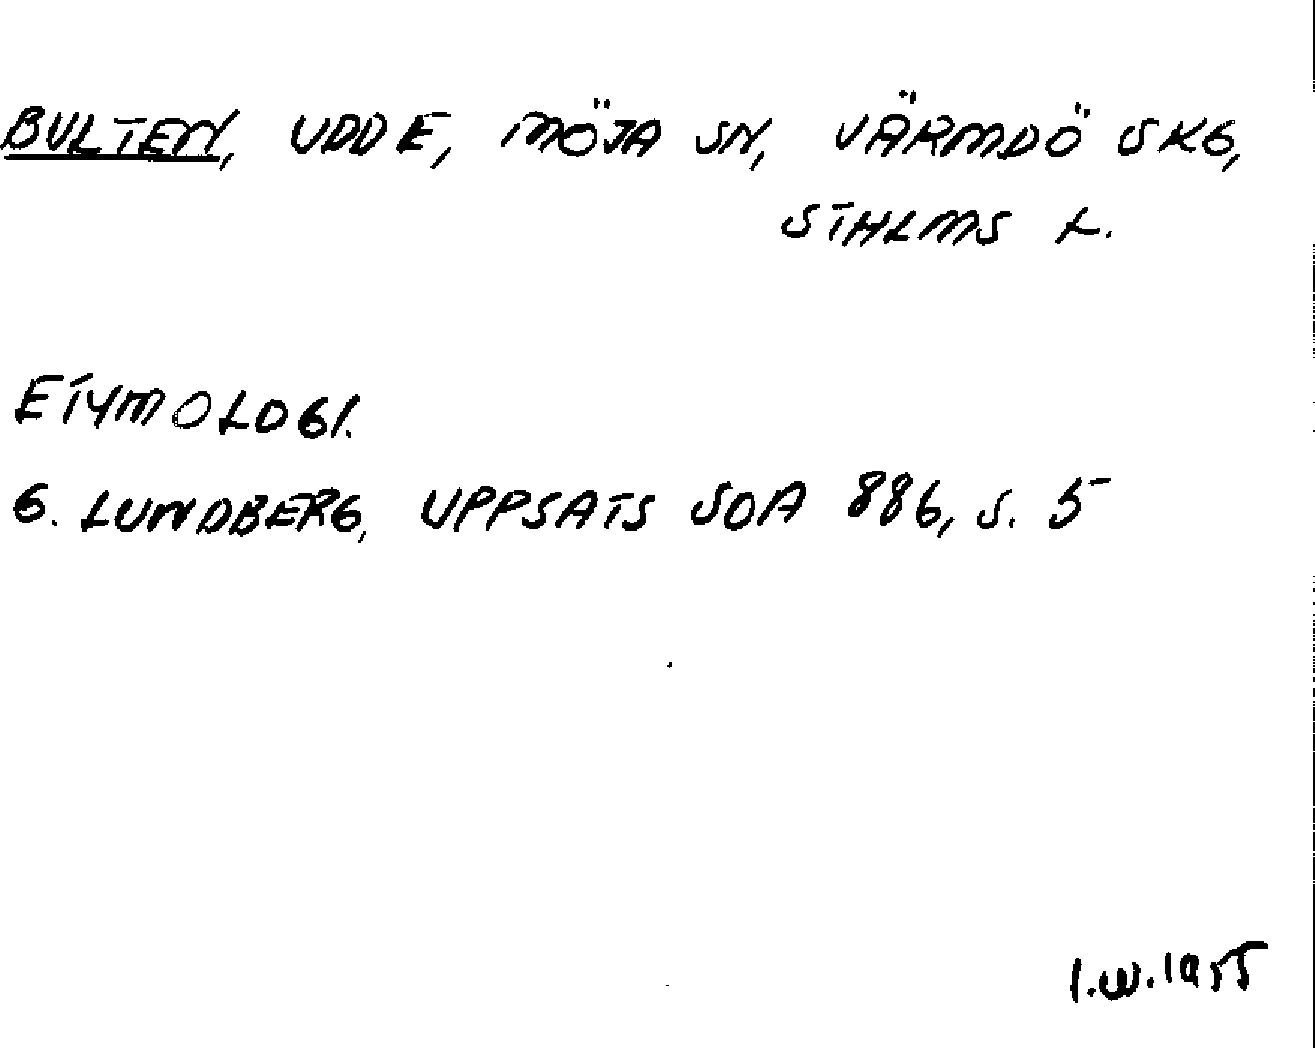 BULTEN, UDDE, MÖJA SN, VÄRMDÖ SKG,
STHLMS L.
ETYMOLOGI.
G. LUNDBERG, UPPSATS SOA 886, S. 5
I.W. 1955